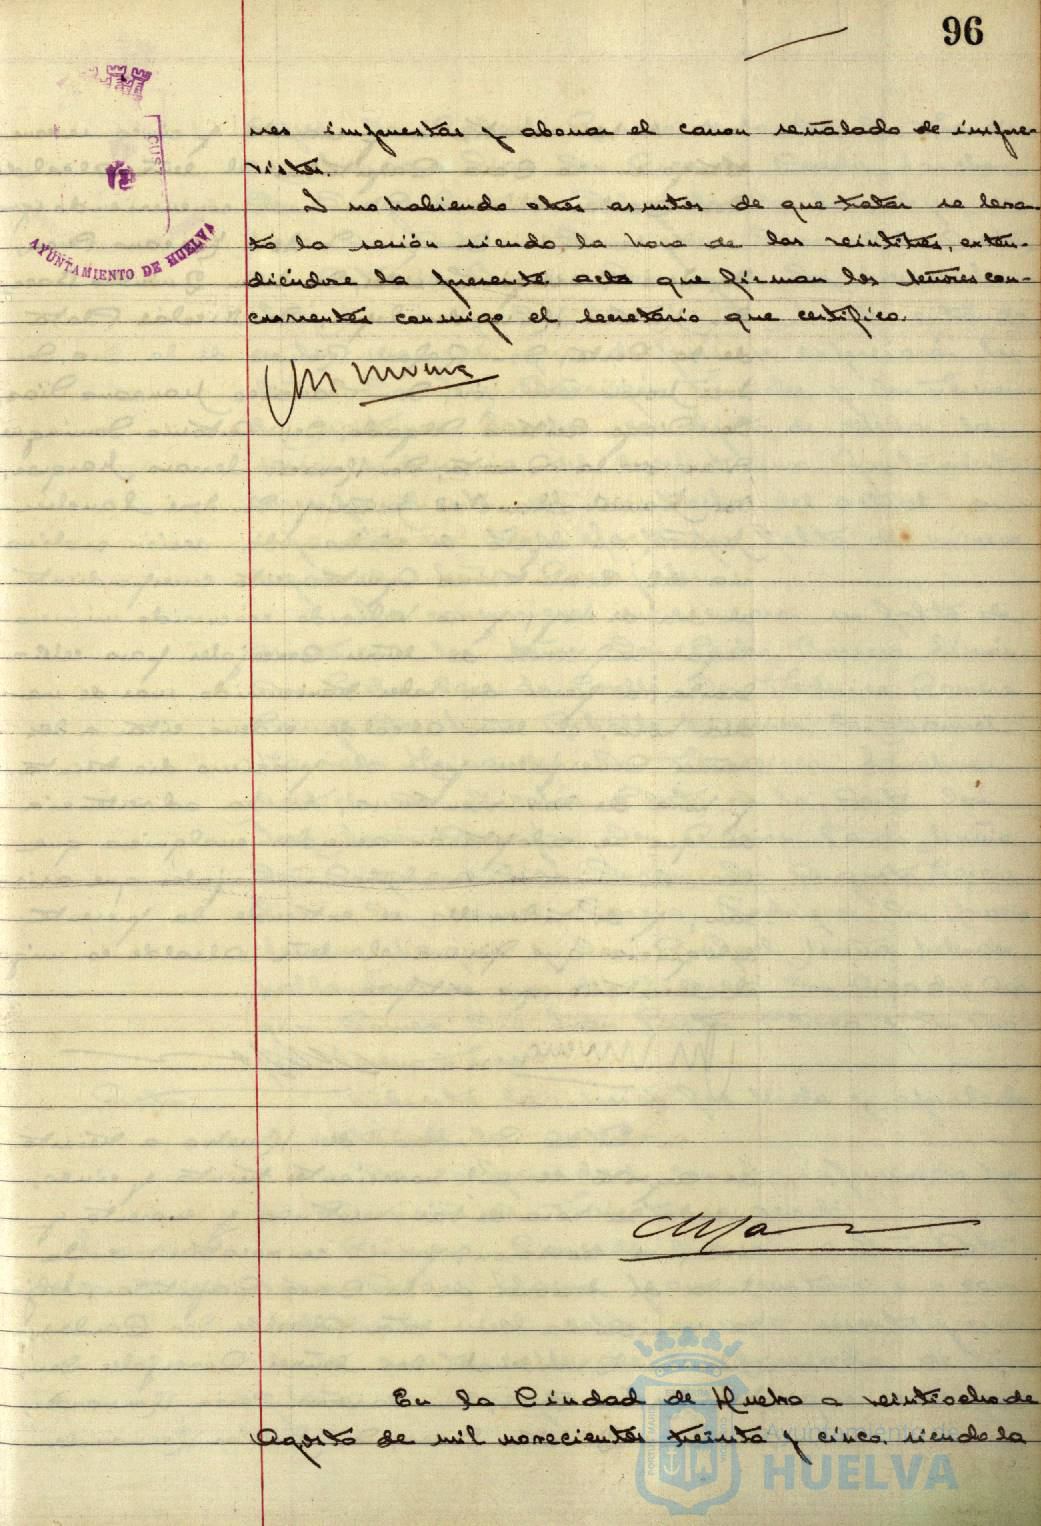 96
nes impuestas y abonar el canon señalado de impre-
vistos.
Y no habiendo otros asuntos de que tratar se levan-
tó la sesión siendo la hora de las veintitres, exten-
diéndose la presente acta que firman los señores con-
currentes conmigo el Secretario que certifico.
AYUNTAMIENTO DE HUELVA
En la Ciudad de Huelva a veintiocho de
Agosto de mil novecientos treinta y cinco, siendo la
Ayuntamiento de
HUELVA